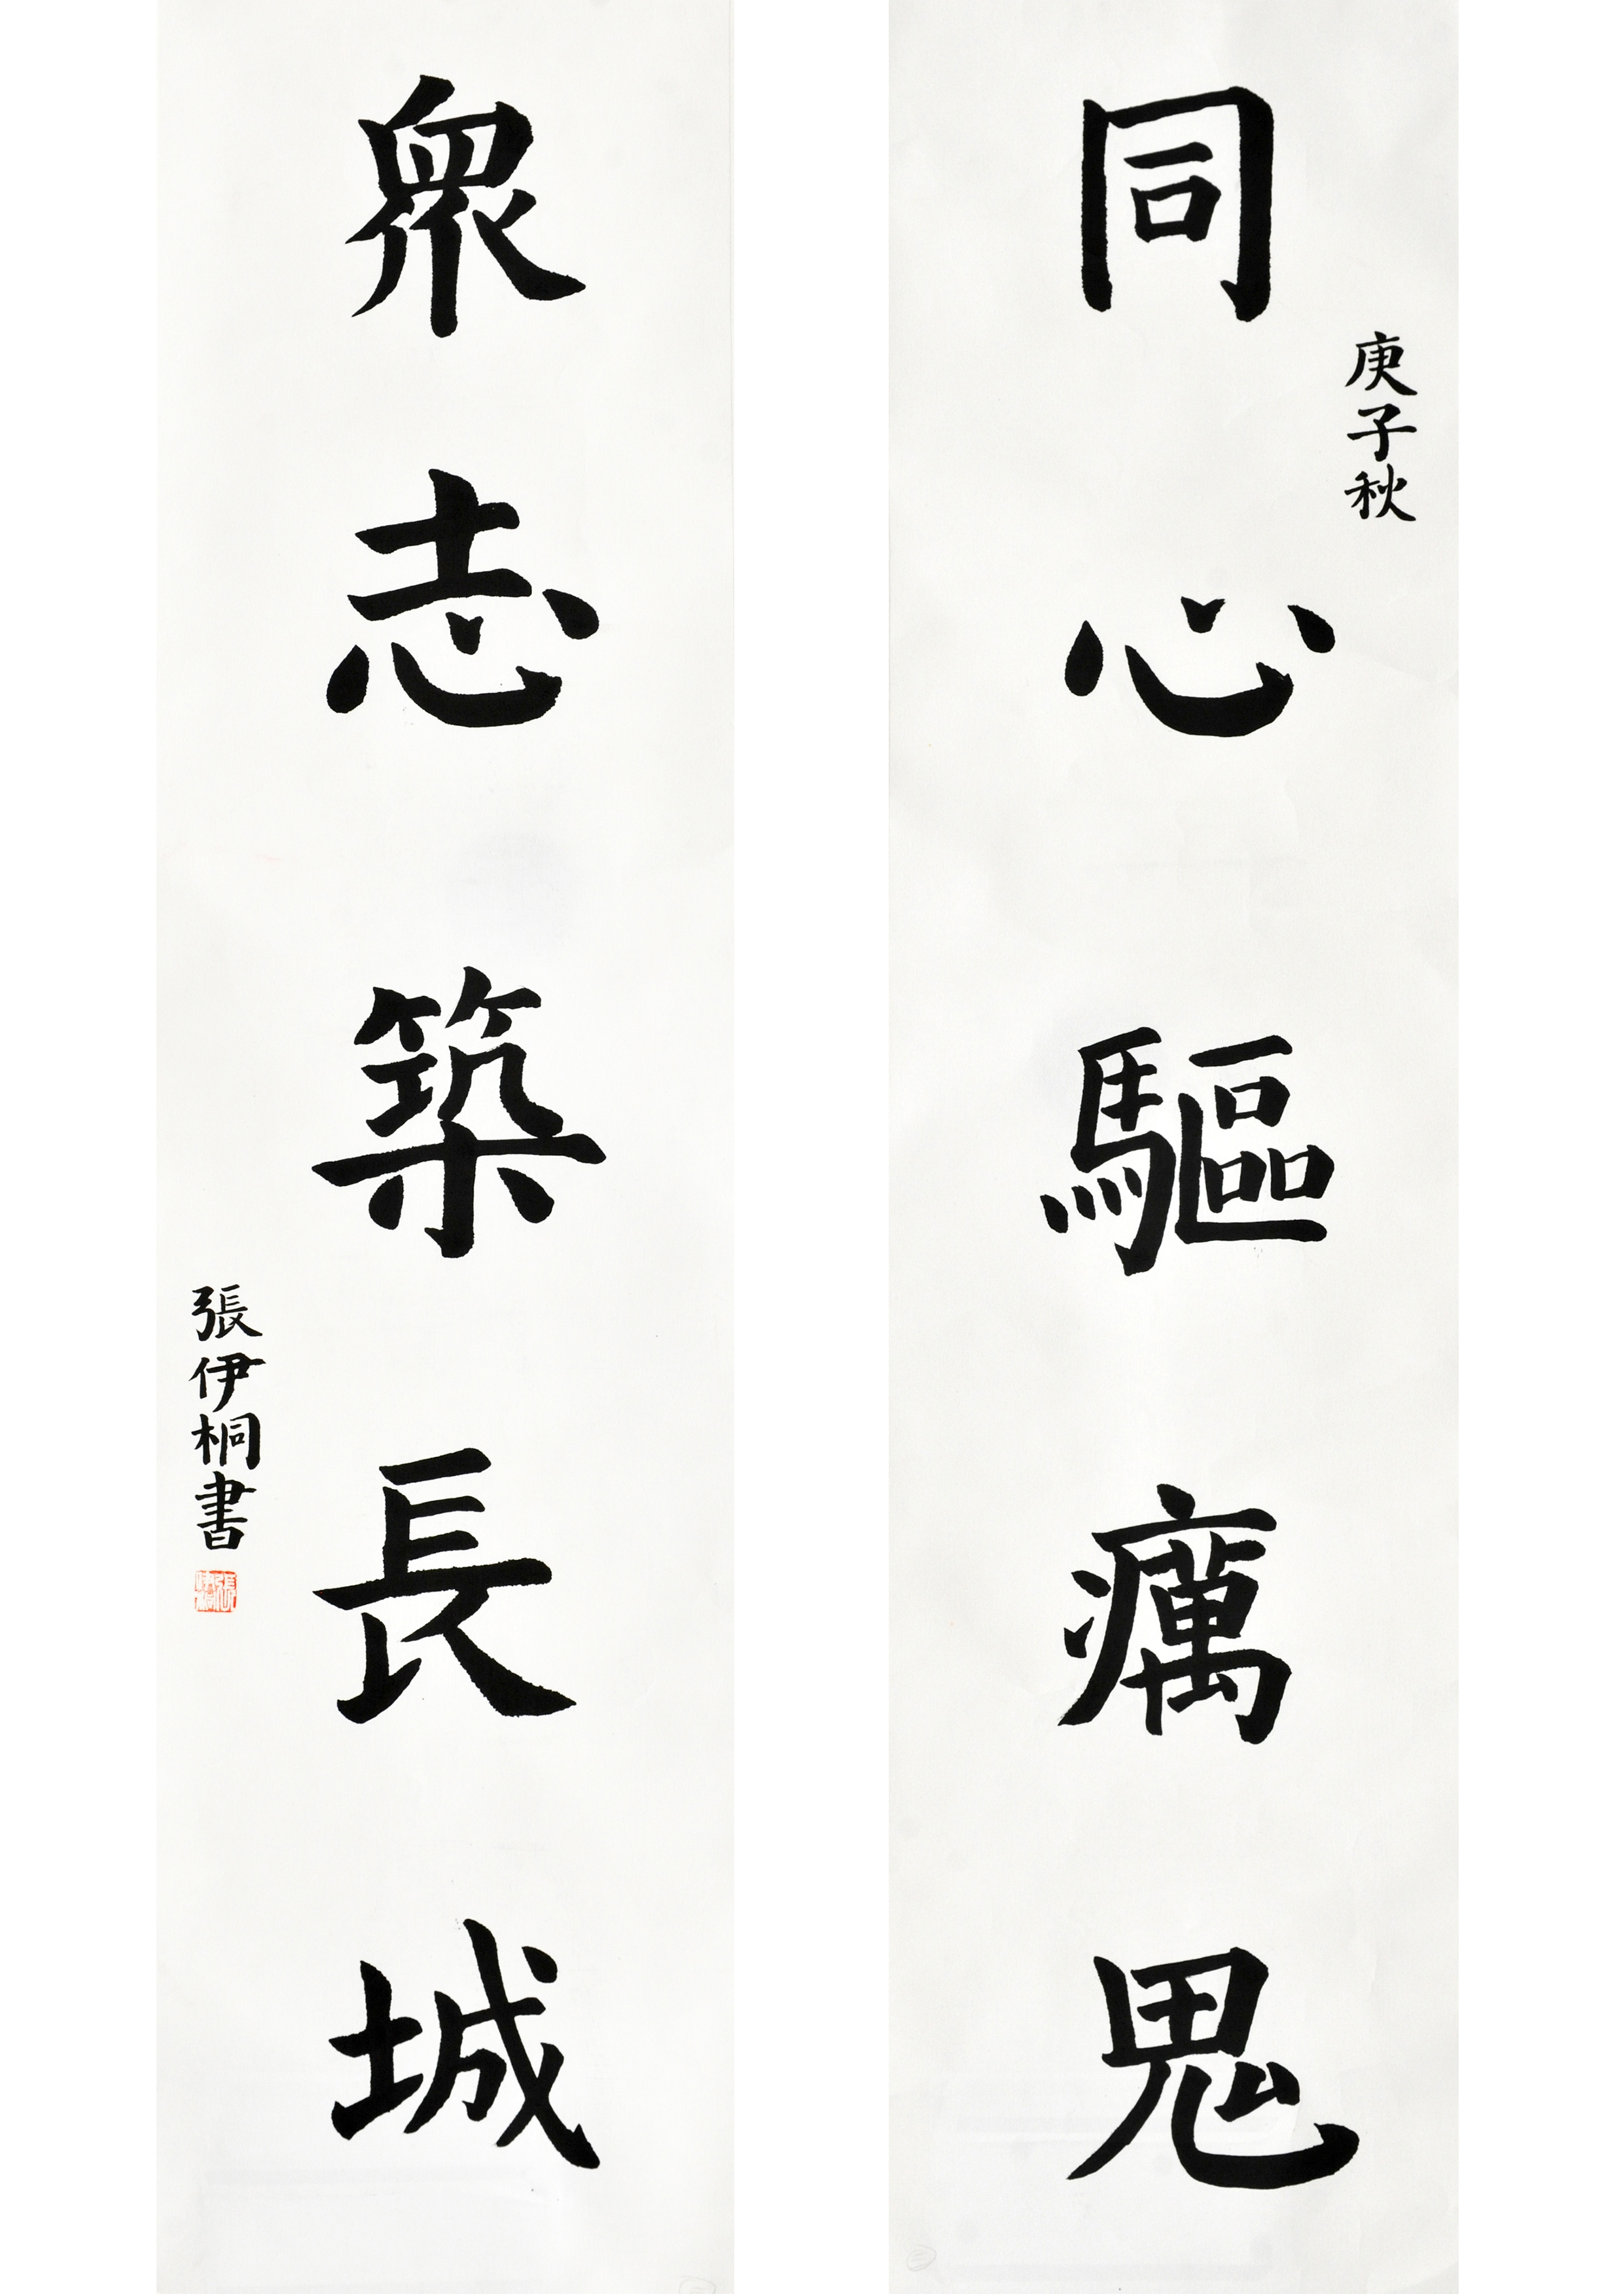 庚子秋
同心驅癘鬼
眾志築長城
張伊桐書